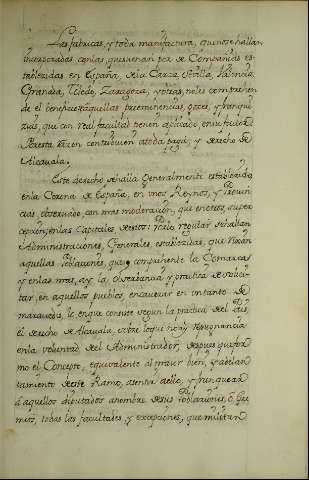 Las fabricas, y toda manufactura, que no se hallan
incorporadas con las, que suenan por de Compañias es-
tablecidas en España, de la Caraca, Sevilla, Valencia,
Granada, Toledo, Zaragoza, y otras, no les comprehen-
de el beneficio de aquellas preeminencias, goces, y franqui-
cias, que con real facultad tienen aplicado en su favor.
Por esta razon contribuien a toda paga, y derecho de
Alcavala.
Este derecho se halla Generalmente establecido
en la Corona de España, en unos Reynos, y Provin-
cias, observando, con mas moderacion, que en otros, su per-
cepcion, en las Capitales, de estos: Por lo regular se hallan
Administraciones, Generales, establecidas, que rixen
aquellas Poblaciones, que comprehende la Comarca
y en las mas, ay la observancia y practica de
tar, en aquellos pueblos, encavezar en un tanto de
maravedis, lo en que consiste segun la practica del Pais,
el derecho de Alcavala, sobre lo que no hay repugnancia
en la voluntad del Administrador, despues que for-
mo el Concepto, equivalente al maior bien, y adelan-
tamiento de este Ramo, asentir a ello, y franquear
a aquellos diputados a nombre de sus Poblaciones, ó Gre-
mios, todas las facultades, y excepciones, que militan